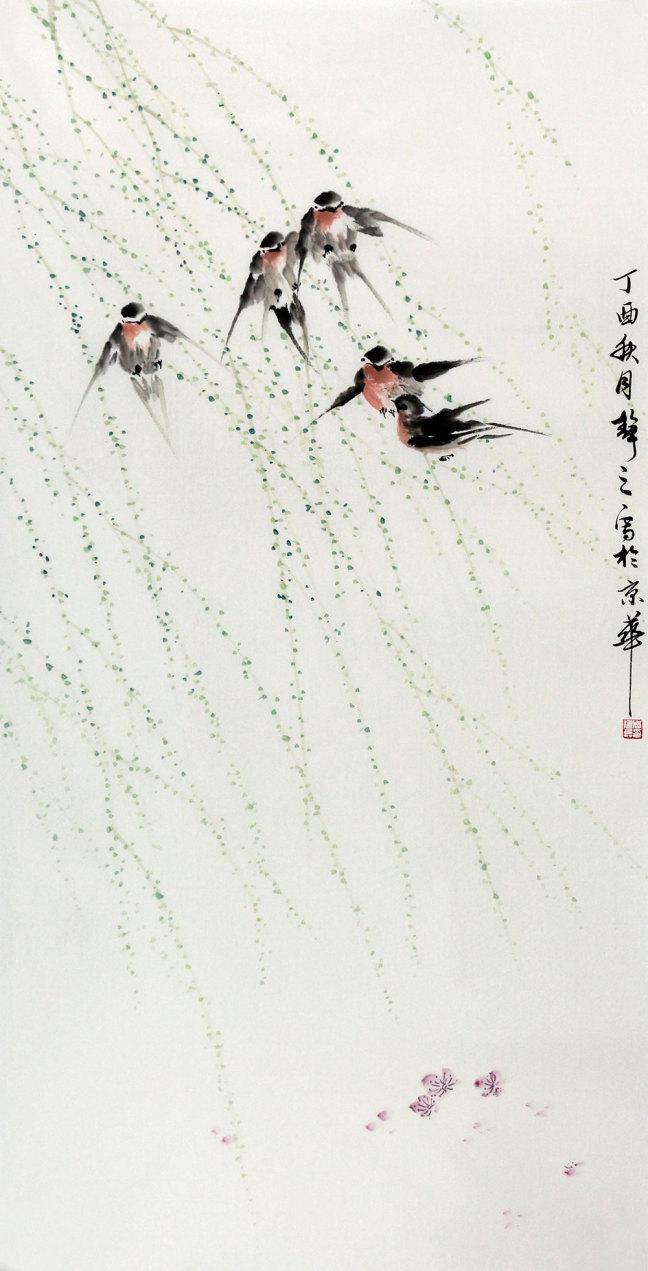 丁酉秋月声之写於京华